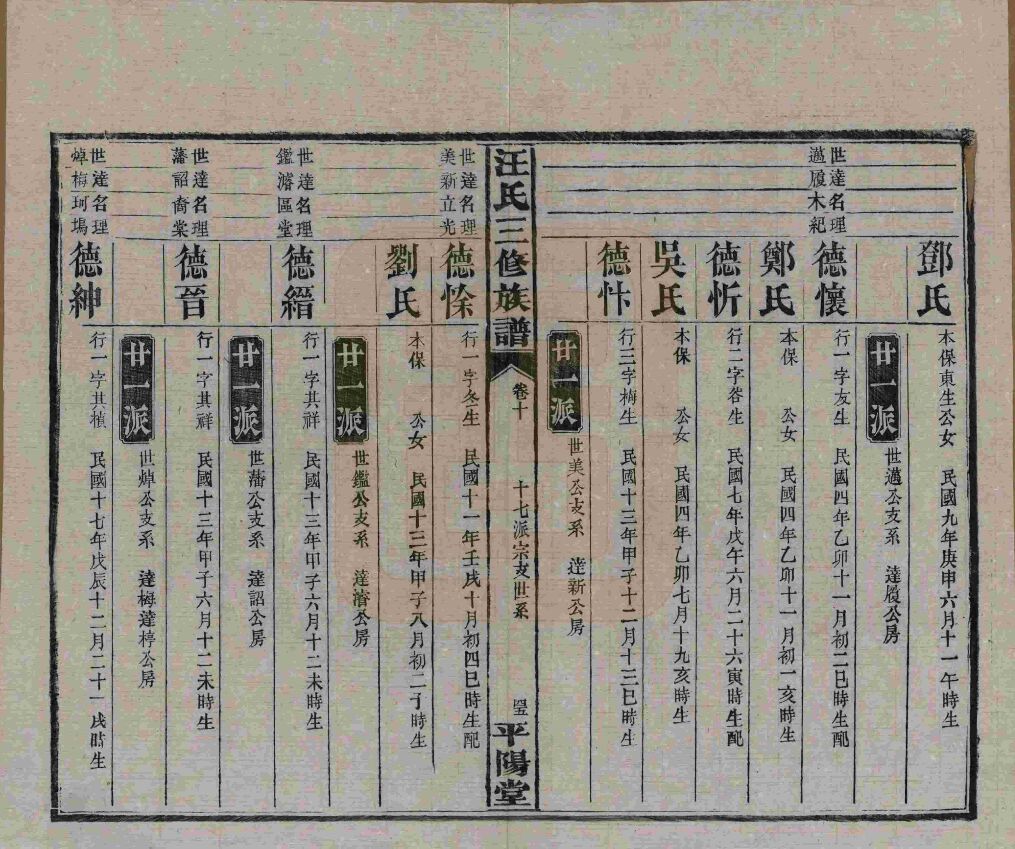 鄧氏 本保東生公女 民國九年庚申六月十一午時生
廿一派 世邁公支系 達廈公房
世達名理
邁廈木紀
德懷 行一字友生 民國四年乙卯十一月初二巳時生配
鄭氏 本保 公女 民國四年乙卯十一月初一亥時生
德忻 行二字荅生 民國七年戊午六月二十六寅時生配
吳氏 本保 公女 民國四年乙卯七月十九亥時生
德忭 行三字梅生 民國十三年甲子十二月十三巳時生
廿一派 世美公支系 達新公房
汪氏三修族譜 卷十 十七派宗支世系 平陽堂
世達名理
美新立光
德悇 行一字冬生 民國十一年壬戌十月初四巳時生配
劉氏 本保 公女 民國十三年甲子八月初二子時生
廿一派 世鑑公支系 達濬公房
世達名理
鑑濬區堂
德縉 行一字其祥 民國十三年甲子六月十二未時生
廿一派 世藩公支系 達詔公房
世達名理
藩詔裔棠
德晉 行一字其祥 民國十三年甲子六月十二未時生
廿一派 世焯公支系 達梅達梈公房
世達名理
焯梅珂塢
德紳 行一字其楨 民國十七年戊辰十二月二十一戌時生